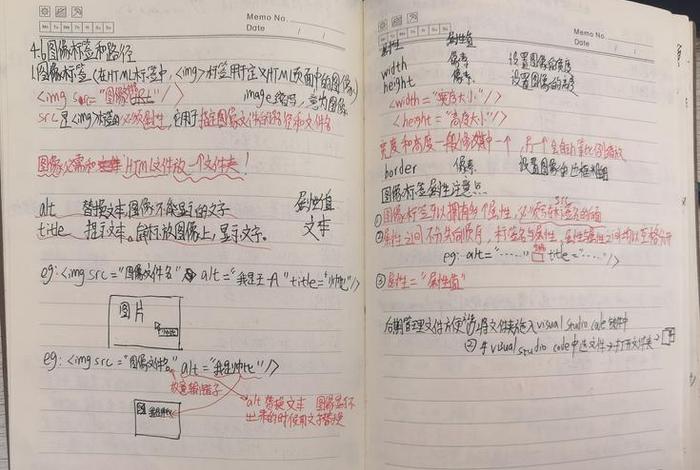 Memo No.
Date / /
Mo Tu We Th Fr Sa Su
4.6图像标签和路径
1.图像标签(在HTML标签中,<img>标签用于定义HTML页面中的图像)
<img src="图像URL"/> image缩写,意为图像
src是<img>标签的必须属性,它用于指定图像文件的路径和文件名
图像必需和HTML文件放一个文件夹!
alt 替换文本,图像不能显示的文字 属性值
title 提示文本。鼠标放图像上,显示文字。 文本
eg:<img src="图像文件名" alt="我是王A" title="帅吧"/>
图片
eg:<img src="图像文件名" alt="我是帅吧"/>
故意输错了
alt 替换文本 图像显示不
出来的时候用文字替换
Memo No.
Date / /
Mo Tu We Th Fr Sa Su
属性 属性值
width 像素 设置图像的宽度
height 像素 设置图像的高度
<width="宽度大小"/>
<height="高度大小"/>
宽度和高度一般修改其中一个,另一个会自动等比例缩放
border 像素 设置图像的边框粗细
图像标签属性注意点
①图像标签可以拥有多个属性,必须写在标签名的后面
②属性之间不分先后顺序,标签名与属性,属性与属性之间均以空格分开
eg: alt="……" 空格 title="……"
③属性="属性值"
后期管理文件方便 ①将文件夹拖入visual studio code软件中
②在visual studio code中选文件→打开文件夹→